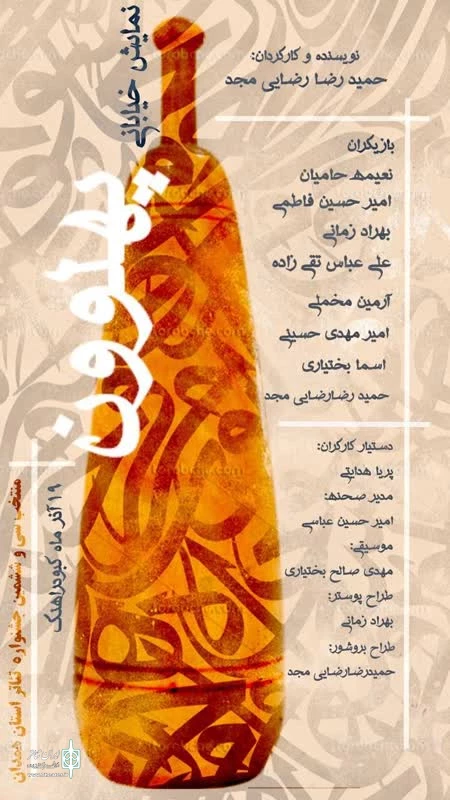 نمایش خیابانی
پهلوون
نویسنده و کارگردان:
حمید رضا رضایی مجد
بازیگران
نعیمه حامیان
امیر حسین فاطمی
بهراد زمانی
علی عباس تقی زاده
آرمین مخملی
امیر مهدی حسینی
اسما بختیاری
حمید رضارضایی مجد
دستیار کارگران:
پریا هدایتی
مدیر صحنه:
امیر حسین عباسی
موسیقی:
مهدی صالح بختیاری
طراح پوستر:
بهراد زمانی
طراح بروشور:
حمیدرضارضایی مجد
۱۹ آذر ماه کبودراهنگ
منتخب سی و ششمین جشنواره تئاتر استان همدان